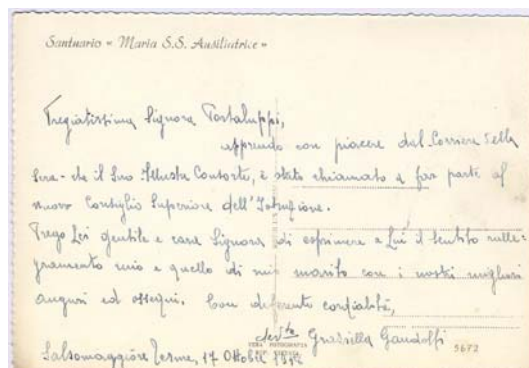 Santuario « Maria S.S. Ausiliatrice »
Pregiatissima Signora Portaluppi,
apprendo con piacere dal Corriere della
Sera - che il Suo Illustre Consorte, è stato chiamato a far parte al
nuovo Consiglio Superiore dell'Istruzione.
Prego Lei gentile e cara Signora di esprimere a Lui il sentito ralle-
gramento mio e quello di mio marito con i nostri migliori
auguri ed ossequi. Con deferente cordialità,
Graziella Gandolfi
VERA FOTOGRAFIA
5672
Salsomaggiore Terme, 17 Ottobre